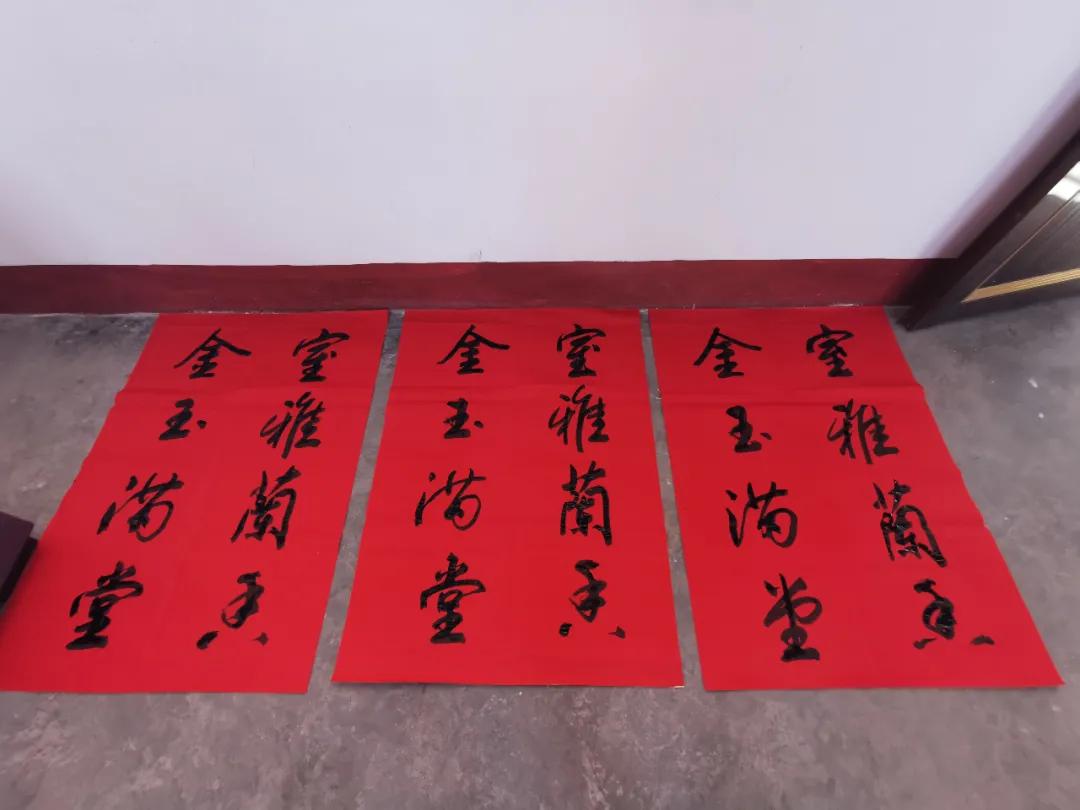 室雅蘭香
金玉满堂
室雅蘭香
金玉满堂
室雅蘭香
金玉满堂